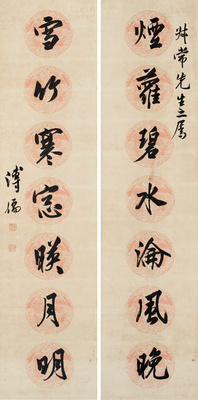 叔常先生之属
煙蘿碧水淪風晚
雪竹寒窓暎月明
溥儒